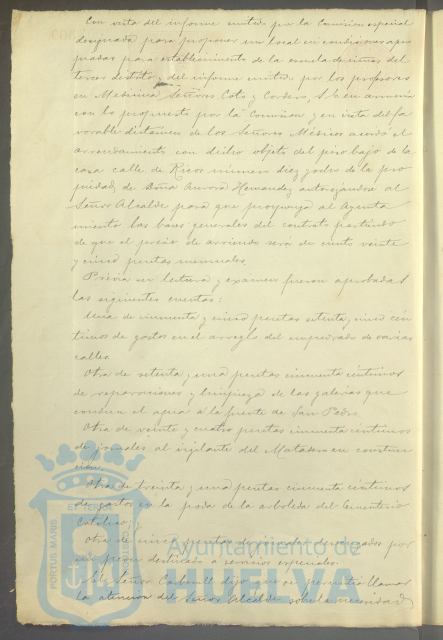 Con vista del informe emitido por la Comisión especial
designada para proponer un local en condiciones apro
piadas para establecimiento de la escuela de niñas del
tercer distrito y del informe emitido por los profesores
en Medicina Señores Coto y Cordero, S. E. en armonía
con lo propuesto por la Comisión y en vista del fa
vorable dictamen de los Señores Médicos acordó el
arrendamiento con dicho objeto del piso bajo de la
casa calle de Ricos número diez y ocho de la pro
piedad de Doña Aurora Hernandez autorizándose al
Señor Alcalde para que proponga al Ayunta
miento las bases generales del contrato partiendo
de que el precio de arriendo será de ciento veinte
y cinco pesetas mensuales.
Prévia su lectura y examen fueron aprobadas
las siguientes cuentas:
Una de cincuenta y cinco pesetas setenta y cinco cén
timos de gastos en el arreglo del empedrado de varias
calles.
Otra de setenta y una pesetas cincuenta céntimos
de reparaciones y limpieza de las galerías que
conducen el agua á la fuente de San Pedro.
Otra de veinte y cuatro pesetas cincuenta céntimos
de jornales al vigilante del Matadero en construc
ción.
Otra de treinta y una pesetas cincuenta céntimos
de gastos en la poda de la arboleda del Cementerio
Católico; y
Otra de cinco pesetas de jornales devengados por
un peón destinado a servicios especiales.
El Señor Carbonell dijo que se permitía llamar
la atención del Señor Alcalde sobre la necesidad
PORTUS MARIS
ET TERRAE
Ayuntamiento de
HUELVA